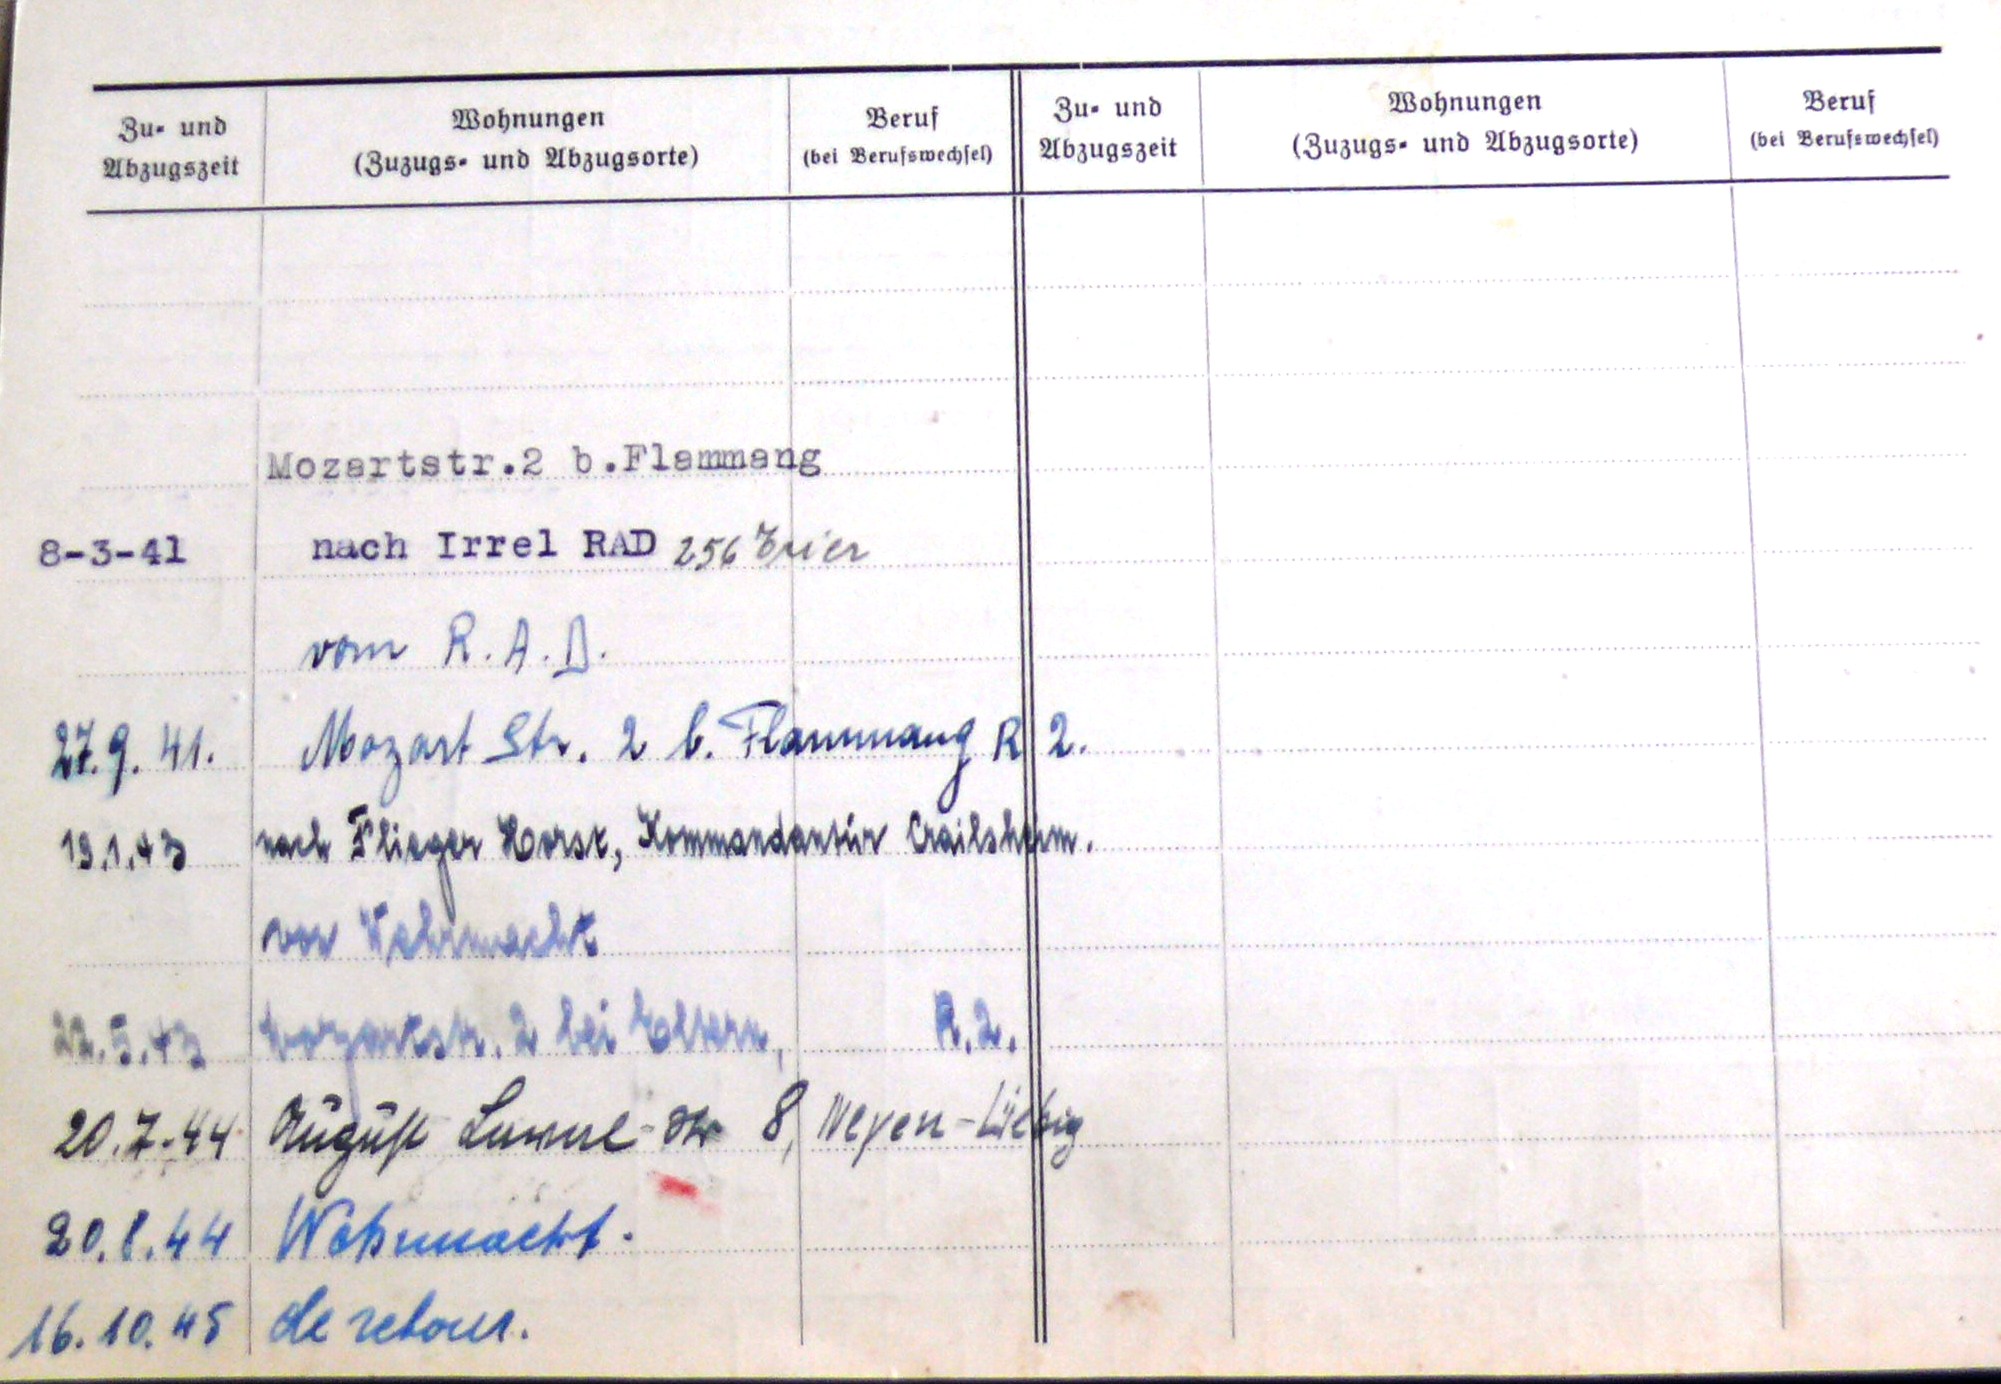 Zu- und Abzugszeit
Wohnungen (Zuzugs- und Abzugsorte)
Beruf (bei Berufswechsel)
Zu- und Abzugszeit
Wohnungen (Zuzugs- und Abzugsorte)
Beruf (bei Berufswechsel)
Mozartstr.2 b.Flammang
8-3-41 nach Irrel RAD 256 Trier
vom R.A.D.
27.9.41. Mozart Str. 2 b. Flammang R 2.
19.1.43 nach Flieger Horst, Kommandantur Crailsheim.
von Wehrmacht
22.5.43 Mozartstr. 2 bei Eltern, R.2.
20.7.44 August Str 8, Weyen-Liebig
20.8.44 Wehrmacht.
16.10.45 de retour.